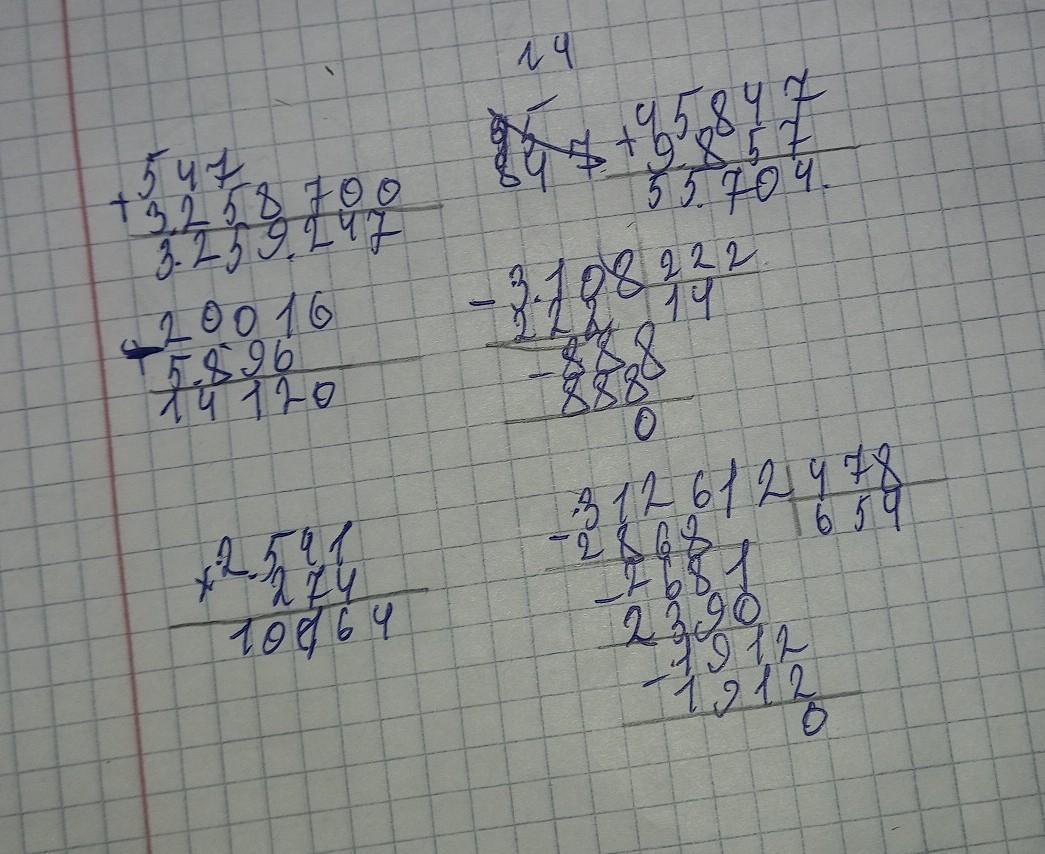 14
547
+ 3.258 700
3.259.247
95
847
+ 45.847
9.857
55.704.
20016
+ 5.896
14120
- 3.108 222
222 14
- 888
888
0
x 2.541
274
10164
- 312612 478
2868 654
- 2681
2390
- 1912
1912
0